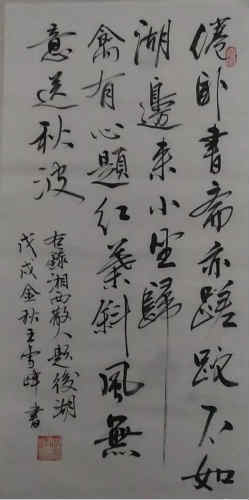 倦卧書斋亦蹉跎不如
湖邊来小坐歸
禽有心題红葉斜風無
意送秋波
右録湘西散人题後湖
戊戌金秋王雪峰書